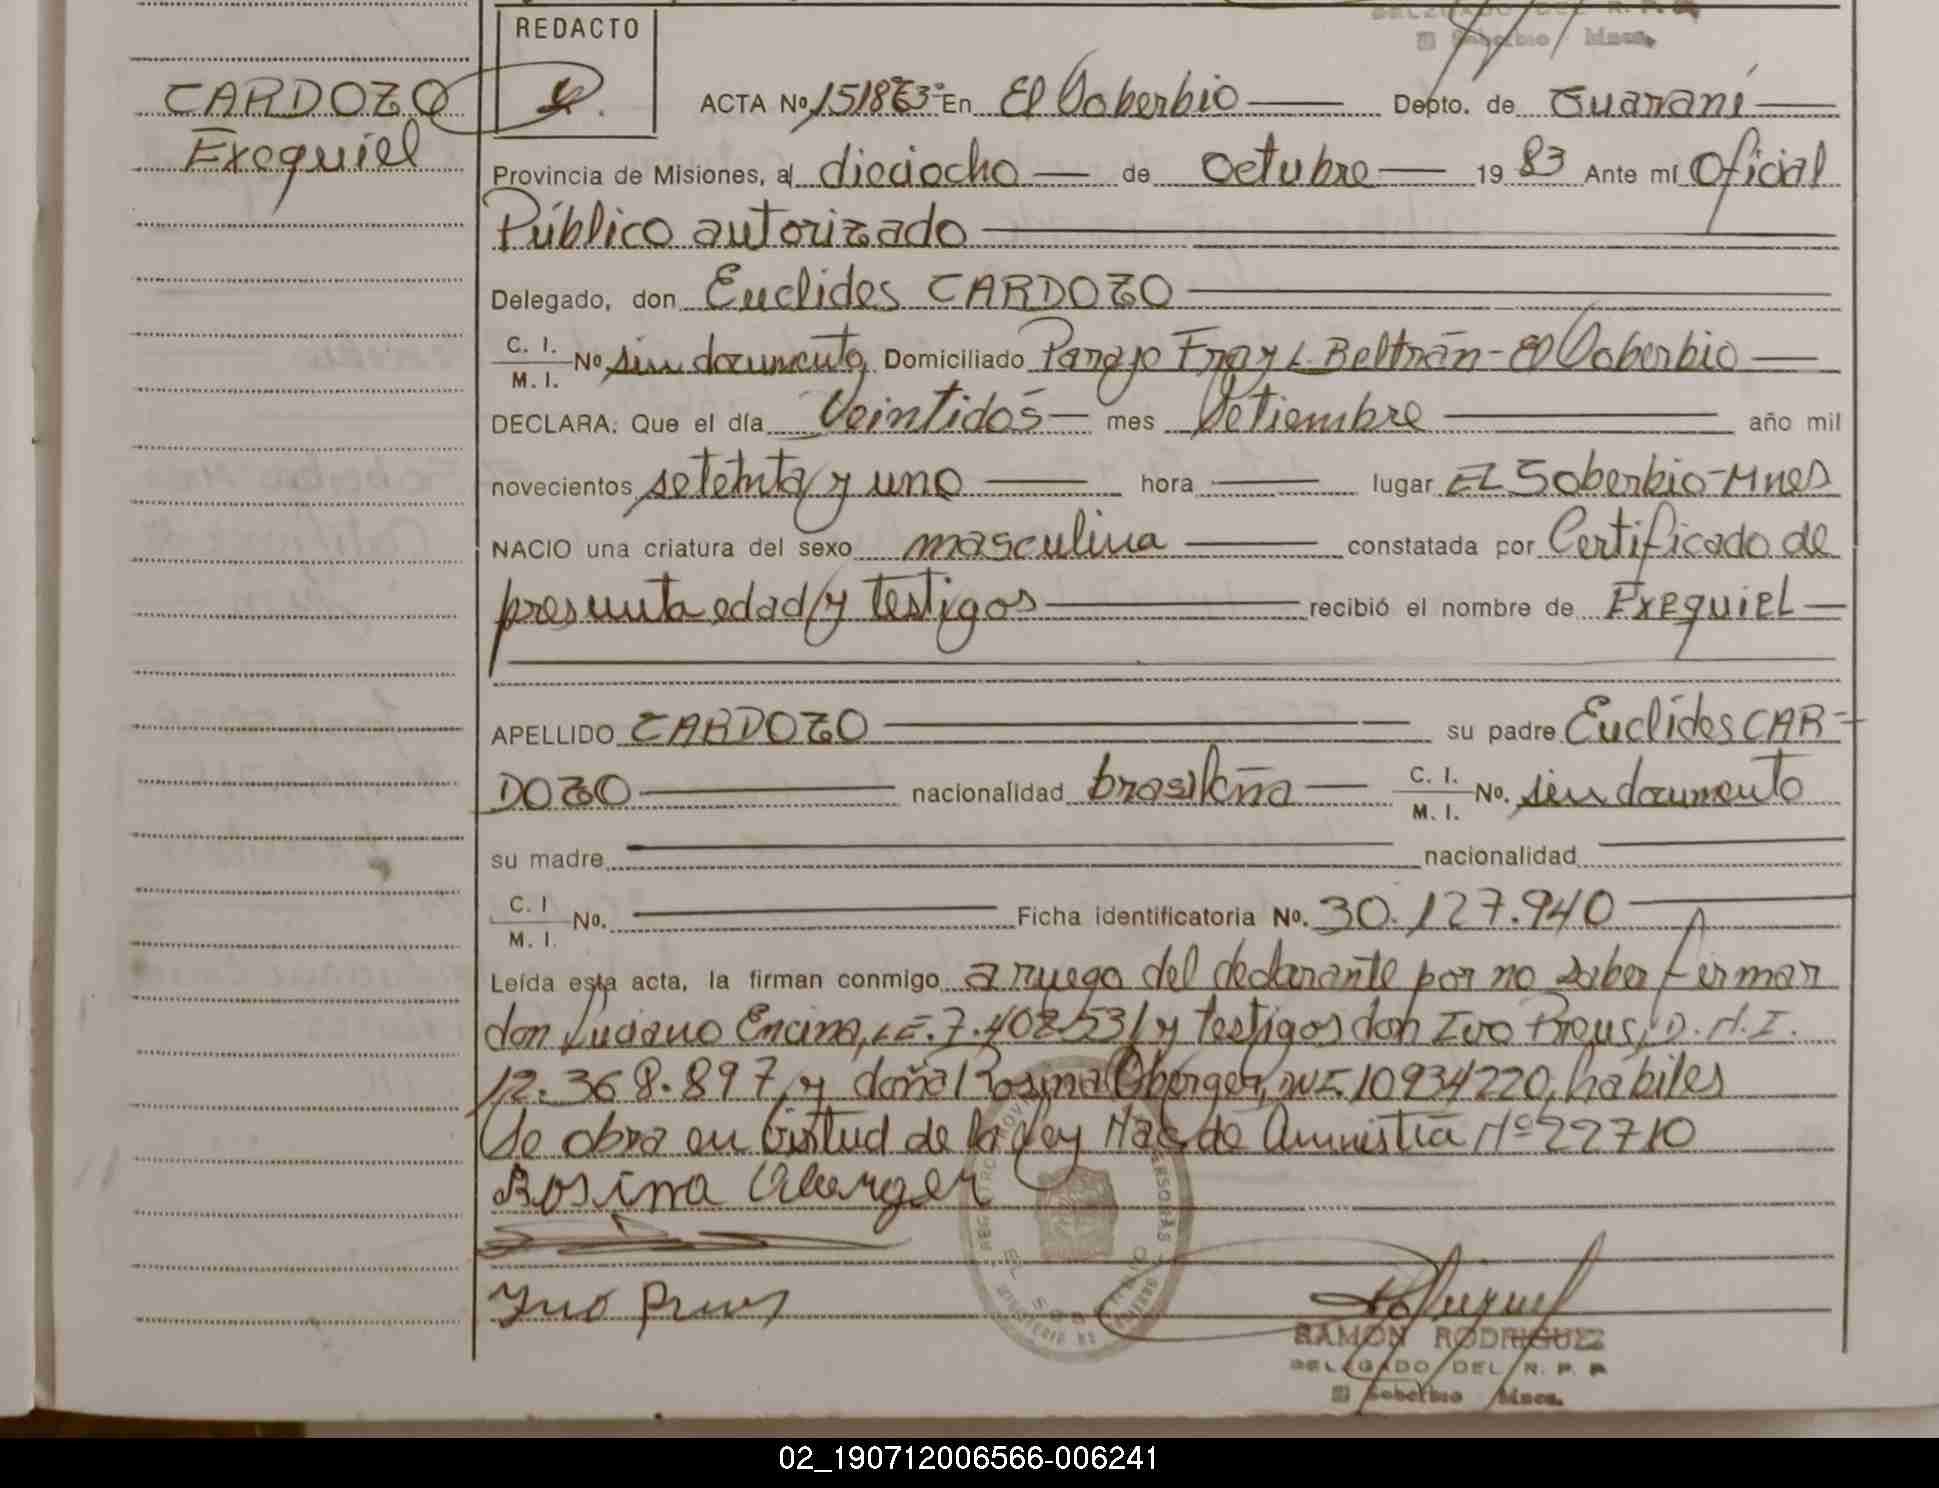 DELEGADO DEL R. P. P.
El Soberbio Mnes.
REDACTO
CARDOZO
Exequiel
ACTA Nº En El Soberbio Depto. de Guaraní
Provincia de Misiones, al dieciocho de Octubre 1983 Ante mí Oficial
Público autorizado
Delegado, don Euclides CARDOZO
C. I. M. I. Nº sin documento, Domiciliado Paraje Fray L. Beltrán - El Soberbio
DECLARA: Que el día Veintidós mes Setiembre año mil
novecientos setenta y uno hora lugar EL Soberbio-Mnes
NACIO una criatura del sexo masculina constatada por Certificado de
presunta edad y testigos recibió el nombre de ExEquiEL
APELLIDO CARDOZO su padre Euclídes CAR-
DOZO nacionalidad brasileña C. I. M. I. No. sin documento
su madre nacionalidad
C. I M. I. No. Ficha identificatoria No. 30.127.940
Leída esta acta, la firman conmigo a ruego del declarante por no saber firmar
don Luciano Encina, L.E. 7.408.531 y testigos don Ivo Preus, D.N.I.
12.368.897, y doña Rosina Oberger, DNI. 10934220, habiles
Se obra en Virtud de la Ley Nac de Amnistía Nº 22710
Rosina Oberger
Ivo Preus
REGISTRO PROVINCIAL PERSONAS
EL SOBERBIO
RAMON RODRIGUEZ
DELEGADO DEL R. P. P
El Soberbio Mnes.
02_190712006566-006241